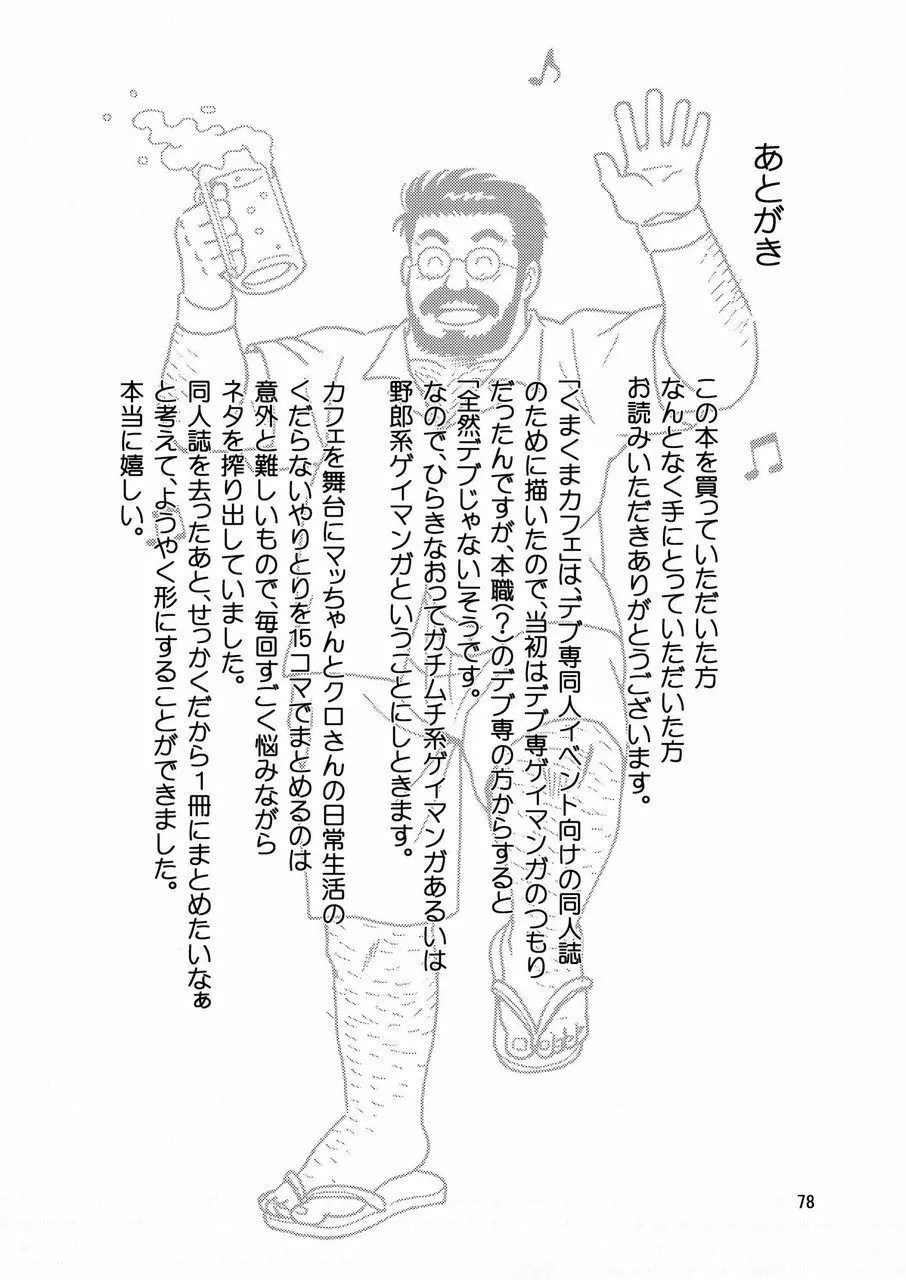 あとがき
この本を買っていただいた方
なんとなく手にとっていただいた方
お読みいただきありがとうございます。
「くまくまカフェ」は、デブ専同人イベント向けの同人誌
のために描いたので、当初はデブ専ゲイマンガのつもり
だったんですが、本職(?)のデブ専の方からすると
「全然デブじゃない」そうです。
なので、ひらきなおってガチムチ系ゲイマンガあるいは
野郎系ゲイマンガということにしときます。
カフェを舞台にマッちゃんとクロさんの日常生活の
くだらないやりとりを15コマでまとめるのは
意外と難しいもので、毎回すごく悩みながら
ネタを搾り出していました。
同人誌を去ったあと、せっかくだから1冊にまとめたいなぁ
と考えて、ようやく形にすることができました。
本当に嬉しい。
78